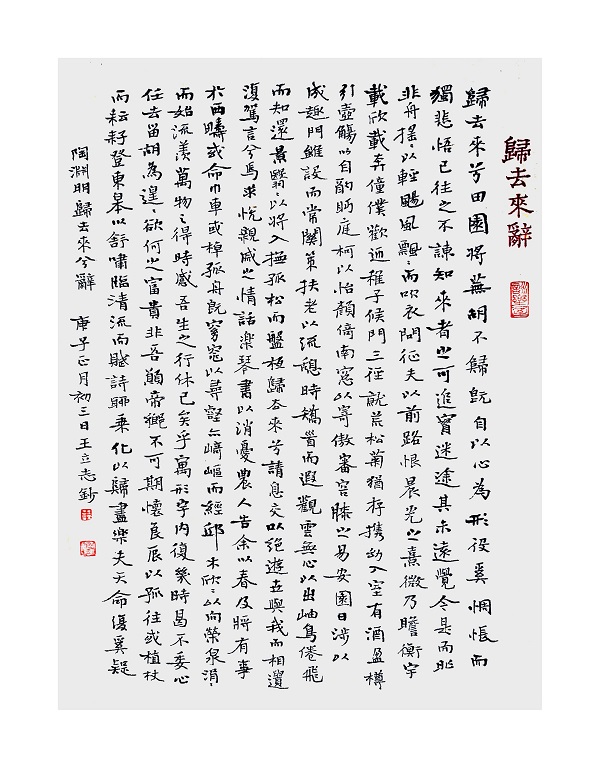 歸去來辭
歸去來兮田園將蕪胡不歸既自以心為形役奚惆悵而
獨悲悟已往之不諫知來者之可追實迷途其未遠覺今是而昨
非舟搖〻以輕颺風飄〻而吹衣問征夫以前路恨晨光之熹微乃瞻衡宇
載欣載奔僮僕歡迎稚子候門三徑就荒松菊猶存攜幼入室有酒盈樽
引壺觴以自酌眄庭柯以怡顏倚南窗以寄傲審容膝之易安園日涉以
成趣門雖設而常關策扶老以流憩時矯首而遐觀雲無心以出岫鳥倦飛
而知還景翳〻以將入撫孤松而盤桓歸去來兮請息交以絕遊世與我而相遺
復駕言兮焉求悅親戚之情話樂琴書以消憂農人告余以春及將有事
於西疇或命巾車或棹孤舟既窈窕以尋壑亦崎嶇而經邱木欣〻以向榮泉涓〻
而始流羨萬物之得時感吾生之行休已矣乎寓形宇內復幾時曷不委心
任去留胡為遑〻欲何之富貴非吾願帝鄉不可期懷良辰以孤往或植杖
而耘耔登東皋以舒嘯臨清流而賦詩聊乘化以歸盡樂夫天命復奚疑
陶淵明歸去來兮辭 庚子正月初三日王立志鈔